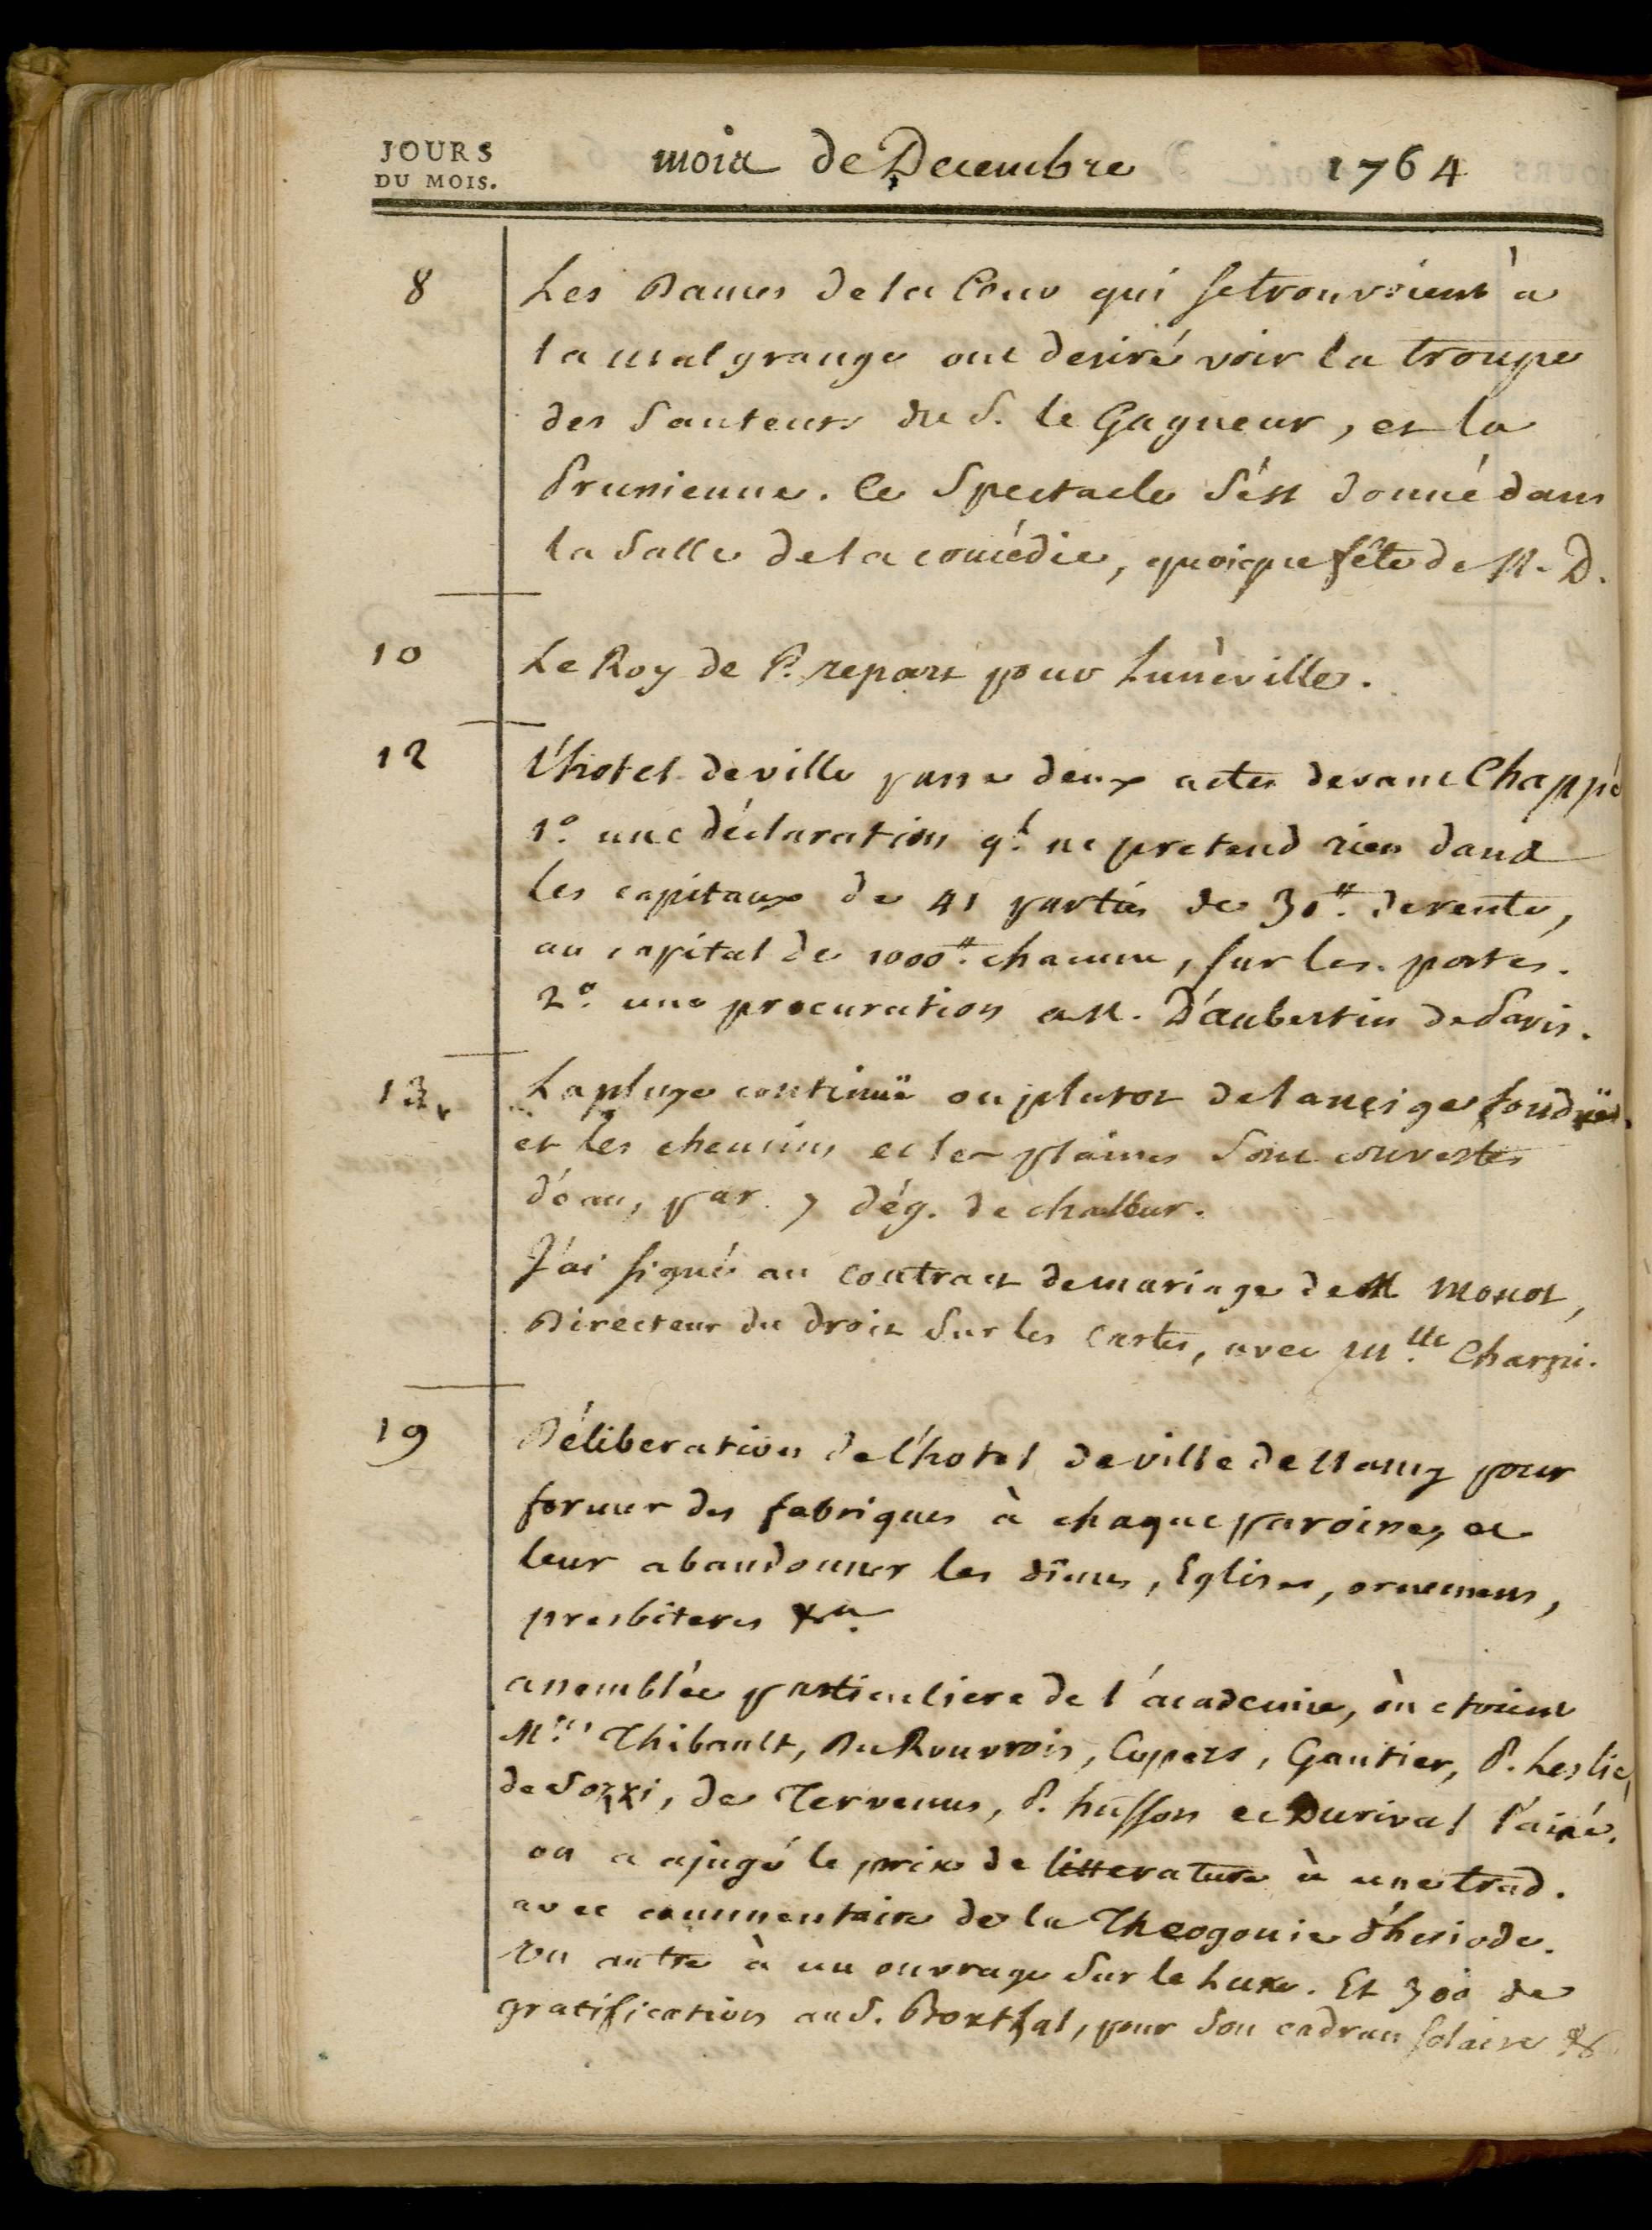 JOURS
DU MOIS.
mois de Decembre 1764
8 Les Dames de la Cour qui se trouvoient à
la malgrange ont desiré voir la troupe
des Sauteurs du S. le Gagneur, et la
Prusienne. Ce Spectacle s'est donné dans
la Salle de la comédie, quoique fête de N. D.
10 Le Roy de P. repart pour Lunéville.
12 L'hotel de ville passe deux actes devant Chappé
1°. une déclaration q.l ne pretend rien dans
les capitaux de 41 parties de 30#. de rente,
au capital de 1000#. chacune, sur les postes.
2°. une procuration a M. D'aubertin de Paris.
13 La pluye continuë ou plutot de la neige
et les chemins et les plaines sont couvertes
d'éau, par 7 dég. de chaleur.
J'ai signé au contract de mariage de M Monot,
Directeur du droit sur les Cartes, avec M.lle
19 Déliberation de l'hotel de ville de Nancy pour
former des fabriques à chaque paroisse, et
leur abandonner les dîmes, Eglises, ornemens,
presbiteres &a.
assemblée particuliere de l'academie, où etoient
M.rs Thibault, Du Rouvrois, Cupers, Gautier, P. Leslie,
de Sozzi, de Tervenus, P. husson et Durival l'ainé.
on a ajugé le prix de litterature à une trad.
avec commentaire de la Theogonie d'hesiode.
Un autre à un ouvrage sur le Luxe. Et 300 de
gratification au S. pour son cadran solaire &c